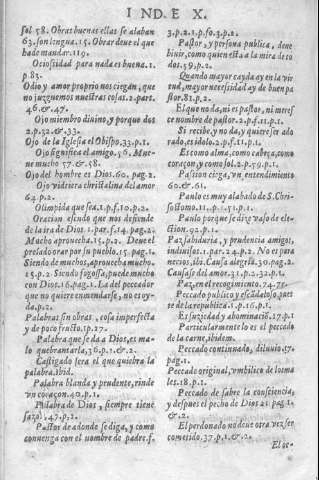 INDEX.
sol. 58. Obras buenas ellas se alaban
63. son lengua. 15. Obras deue el que
ha de mandar. 119.
Ociosidad para nada es buena. 1.
p. 83.
Odio y amor proprio nos ciegan, que
no juzguemos nuestras cosas. 2. part.
46. & .47.
Ojo miembro diuino, y porque dos
2. p. 32. & .33.
Ojo de la Iglesia el Obispo. 33. p. 1.
Ojo significa el amigo. 9. Mue-
ue mucho 57. & 58.
Ojo del hombre es Dios. 60. pag. 2.
Ojo vidriera christalina del amor
64. p. 2.
Olimpida que sea. 1. p. f. 10. p. 2.
Oracion esiendo que nos defiende
de la ira de Dios 1. par. f. 14. pag. 2.
Mucho aprouecha. 15. p. 2. Deue el
prelado orar por su pueblo. 15. pag. 1.
Siendo de muchos, aprouecha mucho.
15. p. 2. Siendo fogosa, puede mucho
con Dios. 16. pag. 1. La del peccador
que no quiere enmendarse, no es oy-
da. p. 2.
Palabras sin obras, cosa imperfecta
y de poco fructo. 1. p. 27.
Palabra que se da a Dios, es ma-
lo quebrantarla, 36. p. 1. & 2.
Castigado sera el que quiebra la
palabra. ibid.
Palabra blanda y prudente, rinde
vn coraçon. 40. p. 1.
Palabra de Dios, siempre tiene
sazon. 47. p. 2.
Pastor de adonde se diga, y como
conuenga con el nombre de padre. f.
3. p. 2. 1. p. fo. 3. p. 2.
Pastor, y persona publica, deue
biuir, como quien esta a la mira de to
dos. 59. p. 2.
Quando mayor cayda ay en la vir
tud, mayor necessidad ay de buen pa
stor. 81. p. 2.
El que no da, ni es pastor, ni meres
ce nombre de pastor. 2. p. f. 11. p. 1.
Si recibe, y no da, y quiere ser ado
rado, es idolo. 2. p. f. 11. p. 1.
Es como alma, como cabeça, como
coraçon, y como sol. 2. p. 59. p. 1.
Passion ciega, vn entendimiento
60. & .61.
Paulo es muy alabado de S. Chri-
sostomo. 11. p. 1. 51. p. 1.
Paulo porque se dize vaso de ele-
ction. 92. p. 1.
Paz sabiduria, y prudencia amigos,
indiuisos. 1. par. 24. p. 2. No es para
necios, ibi. Causa alegria. 30. pag. 2.
Causase del amor. 31. p. 2. 32. p. 1.
Paz, en el recogimiento. 74. 75.
Peccado publico y escādaloso, pes
te de la republica. 1. p. 16. p. 1.
Es suziedad y abominaciō. 17. p. 1
Particularmente lo es el peccado
de la carne, ibidem.
Peccado continuado, diluuio. 17.
pag. 1.
Peccado original, vmbilico de los ma
les. 18. p. 1.
Peccado de sabre la consciencia,
y despues el pecho de Dios 21. pag. 1.
& .2.
El perdonado no deue otra vez, ser
cometido. 37. p. 1. & .2.
El oc-